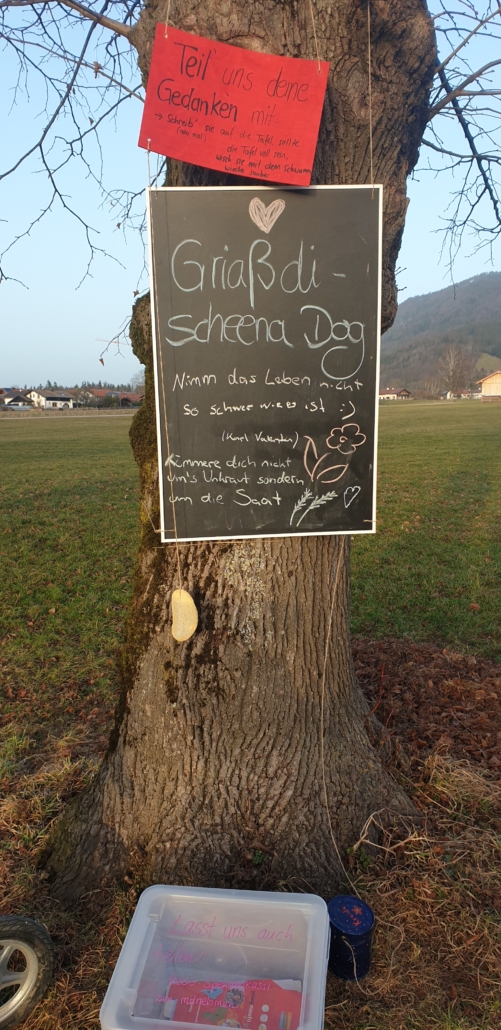 Teil uns deine
Gedanken mit
→ Schreib' sie auf die Tafel, sollte
die Tafel voll sein,
wisch sie mit dem Schwamm
wieder sauber
Griaß di -
scheena Dog
Nimm das Leben nicht
so schwer wie es ist :)
(Karl Valentin)
Kümmere dich nicht
um's Unkraut sondern
um die Saat
Lasst uns auch